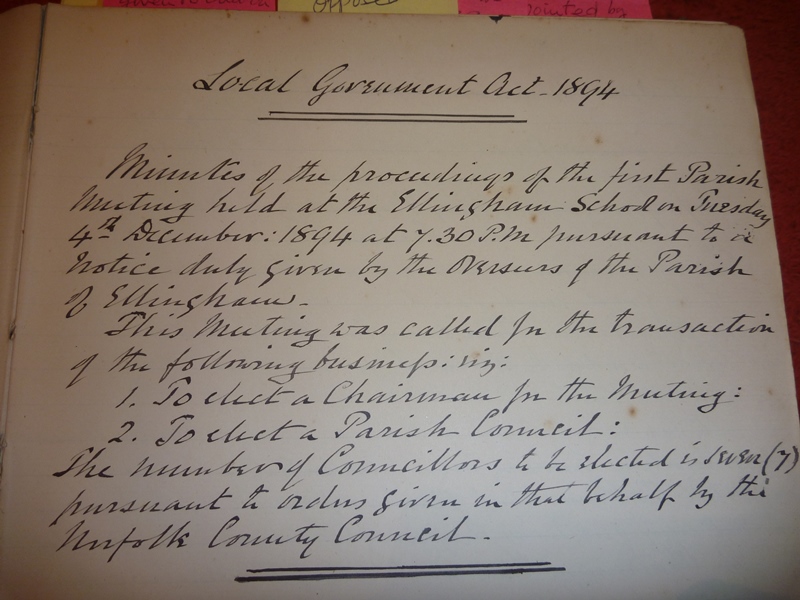 oppose
jointed by
Local Government Act - 1894
Minutes of the proceedings of the first Parish
Meeting held at the Ellingham School on Tuesday
4th December: 1894 at 7.30 P.M pursuant to a
Notice duly given by the Overseers of the Parish
of Ellingham -
This Meeting was called for the transaction
of the following business: viz:
1. To elect a Chairman for the Meeting:
2. To elect a Parish Council:
The number of Councillors to be elected is seven (7)
pursuant to orders given in that behalf by the
Norfolk County Council -